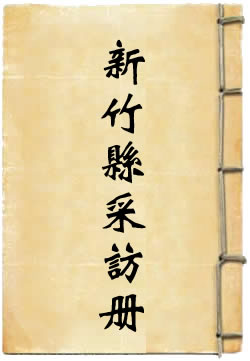 新竹縣采訪册